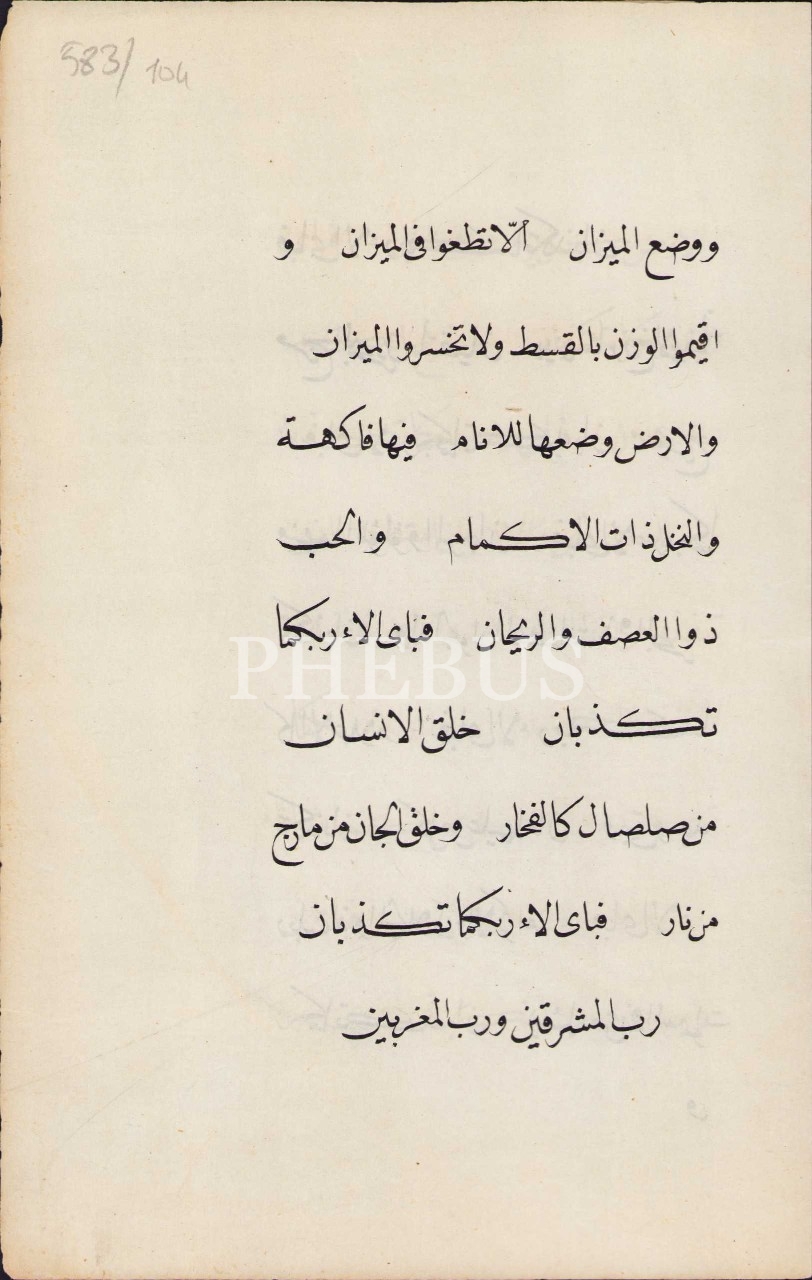 583/104
ووضع الميزان ألّا تطغوا فى الميزان و
اقيموا الوزن بالقسط ولا تخسروا الميزان
والارض وضعها للانام فيها فاكهة
والنخل ذات الاكمام والحب
ذوا العصف والريحان فباى الاء ربكما
تكذبان خلق الانسان
من صلصال كالفخار وخلق الجان من مارج
من نار فباى الاء ربكما تكذبان
رب المشرقين ورب المغربين
PHEBUS